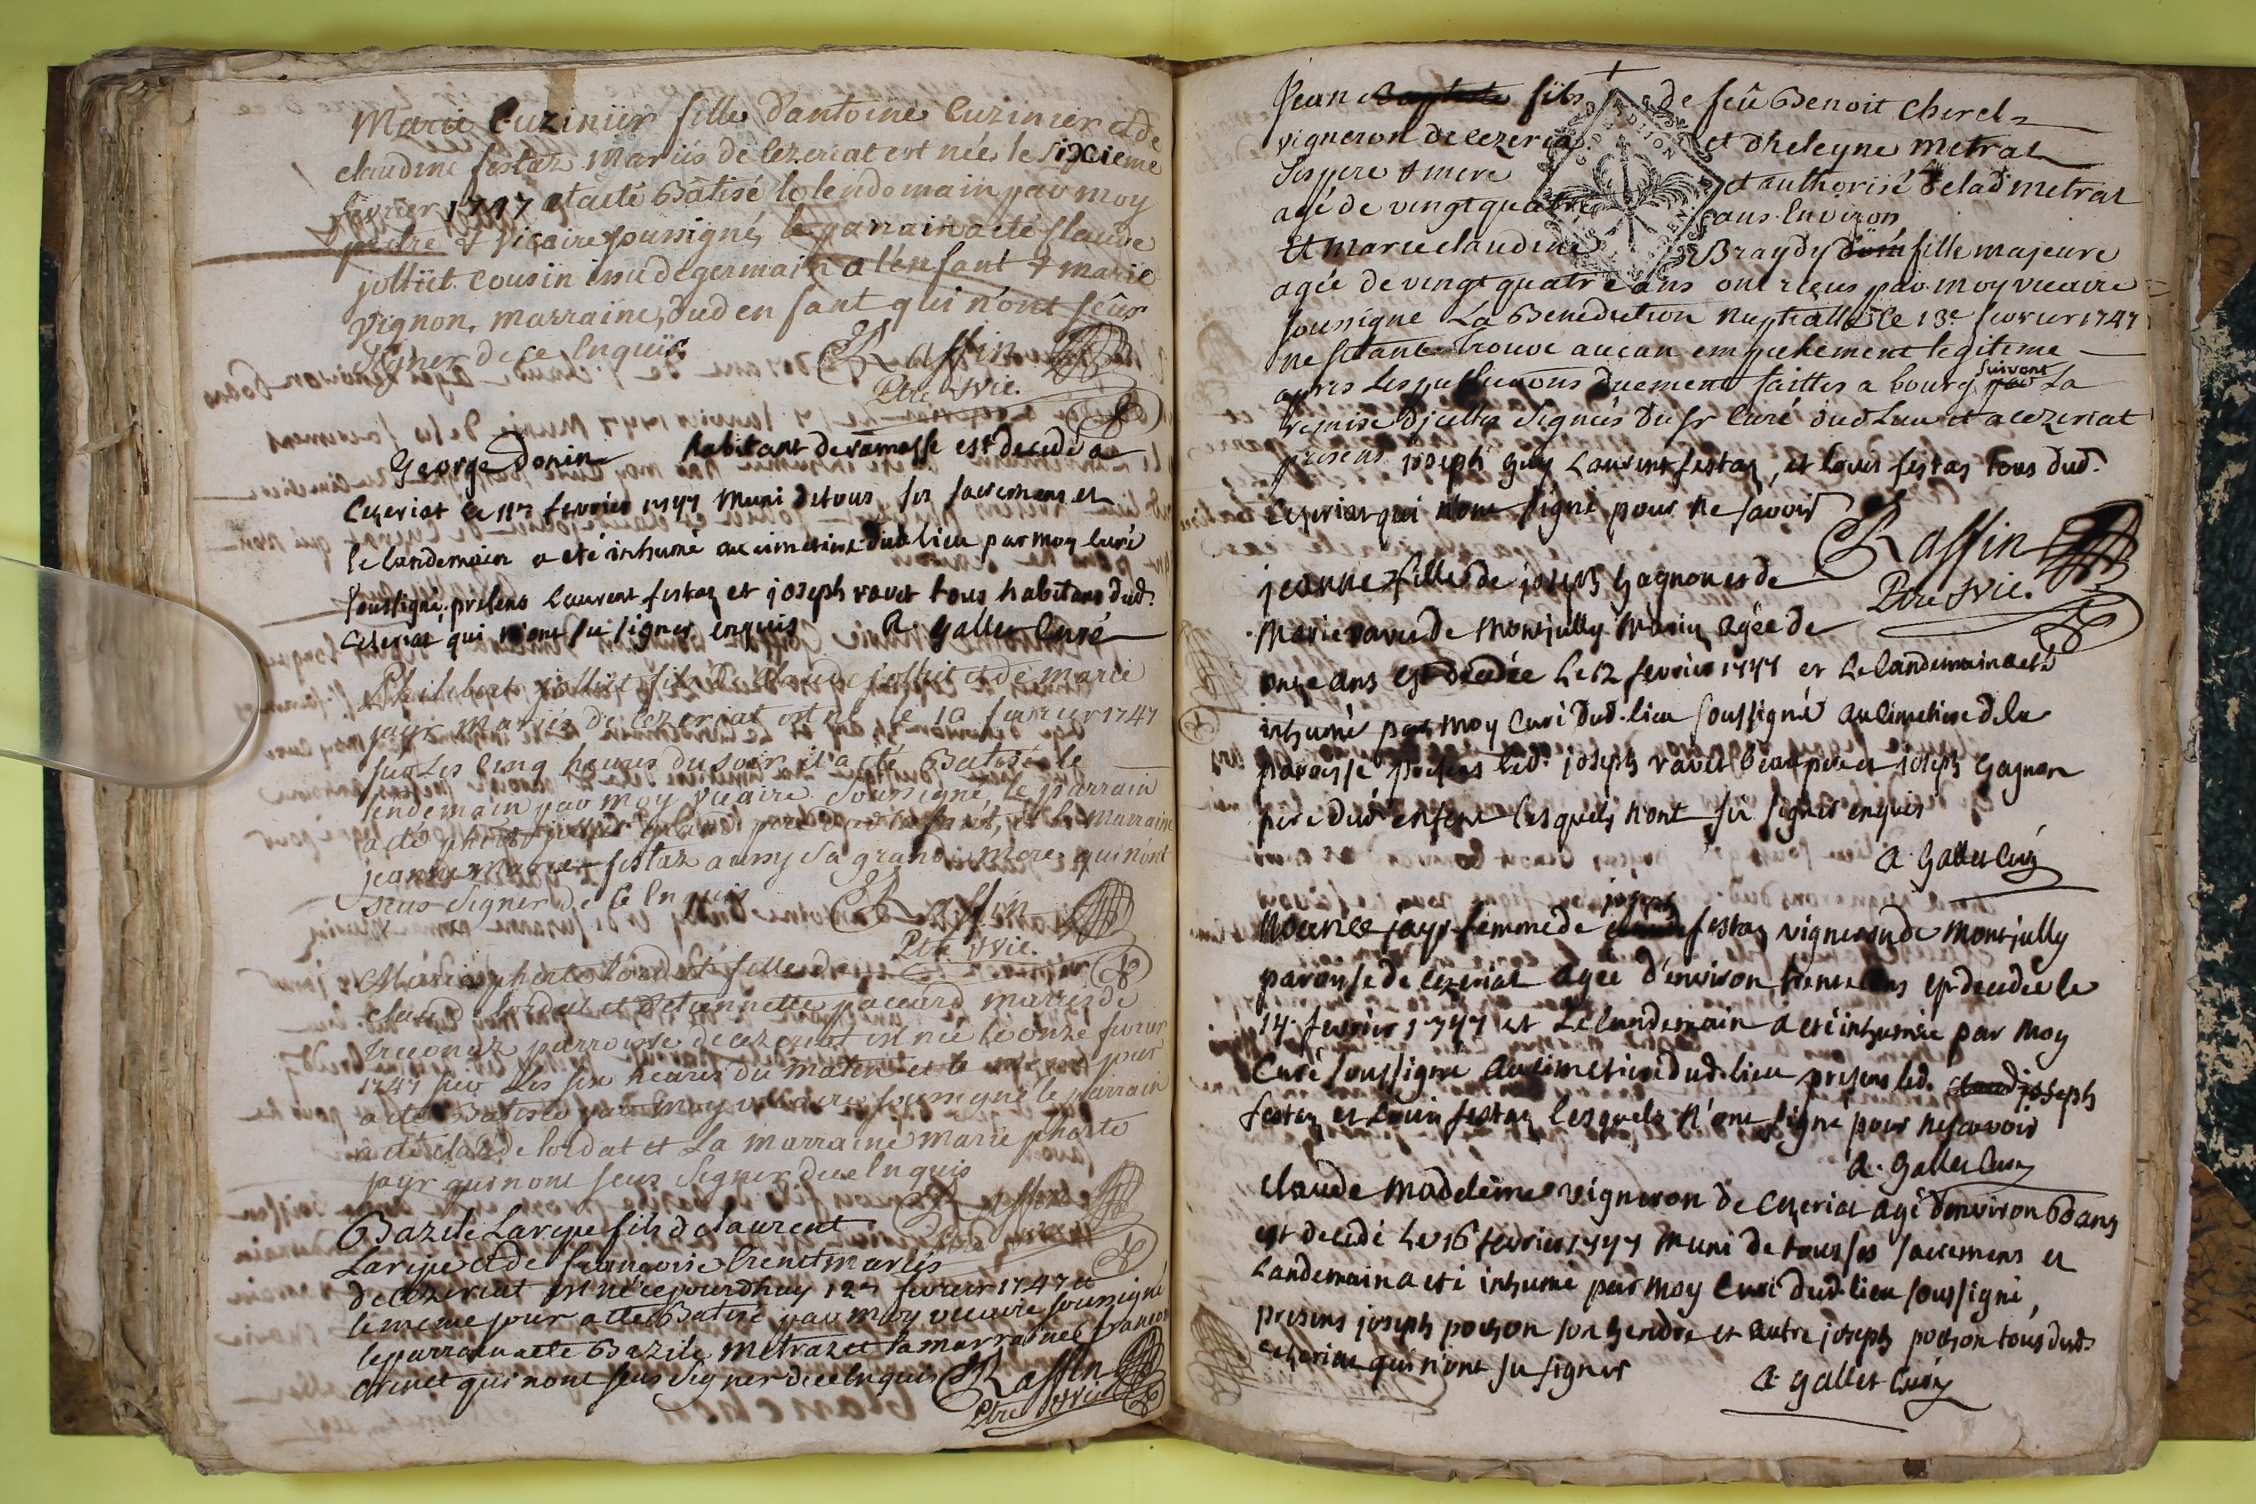 Marie Cuzinier fille d'antoine Cuzinier et de
claudine festaz Mariés de Cezeriat est née le sixieme
fevrier 1747 et a eté Batisé le lendemain par moy
prêtre & Vicaire soussigné, le parrain a eté Claude
jolliet cousin issu de germain a l'enfant & marie
Vignon, marraine, dud enfant qui n'ont sçus
signer de ce Enquis
Raffin
Ptre Vic.
George Donin habitant de ramasse est decedé a
Cezeriat le 11e fevrier 1747 Muni de tous ses sacremens et
le landemain a eté inhumé au cimetiere dud lieu par moy Curé
soussigné, presens Laurent festaz et joseph ravet tous habitans dud.
Cezeriat, qui n'ont su signer enquis A. Gallet Curé
Philibert jolliet fils de Claude jolliet et de marie
jayr Mariés de Cezeriat est né le 10 fevrier 1747
sur Les Cinq heures du soir, il a eté Batisé le
lendemain par moy vicaire soussigné, le parrain
a eté phert jolliet grand pere dud enfant, et la Marraine
jeanne Marie festaz aussy sa grand mere qui n'ont
sçus signer de ce Enquis
Raffin
Ptre Vic.
Marie pherte Loidat fille de
claude Loidat et d'etiennette paccard mariés de
paroisse de cezeriat est née le onze fevrier
1747 sur Les six heures du matin et le même jour
a eté Batisée par moy vicaire soussigné le parrain
a eté Claude Loidat et La marraine Marie pherte
jayr qui n'ont sçus signer de ce Enquis
Raffin
Bazile Laripe fils de laurent
Laripe et de françoise Crenet mariés
de Cezeriat est né ce jourdhuy 12e fevrier 1747 et
le meme jour a eté Batisé par moy vicaire soussigné
le parrain a eté Bazile Metraz et la marraine françoise
Crenet qui n'ont sçus signer de ce Enquis Raffin
Ptre Vic.
Jean fils de feû Benoit Cherel
vigneron de Cezeriat et d'heleyne Metrat
ses pere & mere et authorisé de lad Metrat
agé de vingt quatre ans Environ
Et Marie claudine Braydy fille majeure
agée de vingt quatre ans ont reçus par moy vicaire
soussigné La Benediction Nuptialle le 13e fevrier 1747
ne s'etant trouvé aucun empechement legitime
apres Les publications duement faittes a bourg suivant La
remise d'jcelles signées du sr Curé dud Lieu et a Cezeriat
presens joseph guy Laurent festaz, et Louis festaz tous dud.
Cezeriat qui n'ont signé pour ne sçavoir
Raffin
Ptre Vic.
jeanne fille de joseph Gagnon et de
Marie ravet de Montjully Mariez agée de
onze ans est decedée Le 12 fevrier 1747 et Le landemain a eté
inhumé par moy Curé dud. lieu soussigné au cimetiere de la
paroisse presens led. joseph ravet beaupere et joseph Gagnon
pere dud. enfent lesquels n'ont su signer enquis
A. Gallet Curé
joseph
jayr femme de festaz vigneron de Montjully
paroisse de Cezeriat agée d'environ trente ans est decedée le
14. fevrier 1747 et Le landemain a eté inhumée par moy
Curé soussigné au cimetiere dud. lieu presens led. joseph
festaz et Louis festaz lesquels n'ont signé pour ne sçavoir
A. Gallet Curé
Claude Madeleine vigneron de Cezeriat agé d'environ 60 ans
est decedé Le 16 fevrier 1747 Muni de tous ses sacremens et
Landemain a eté inhumé par moy Curé dud. lieu soussigné,
presens joseph pochon son gendre et autre joseph pochon tous dud.
Cezeriat qui n'ont su signer
A. Gallet Curé